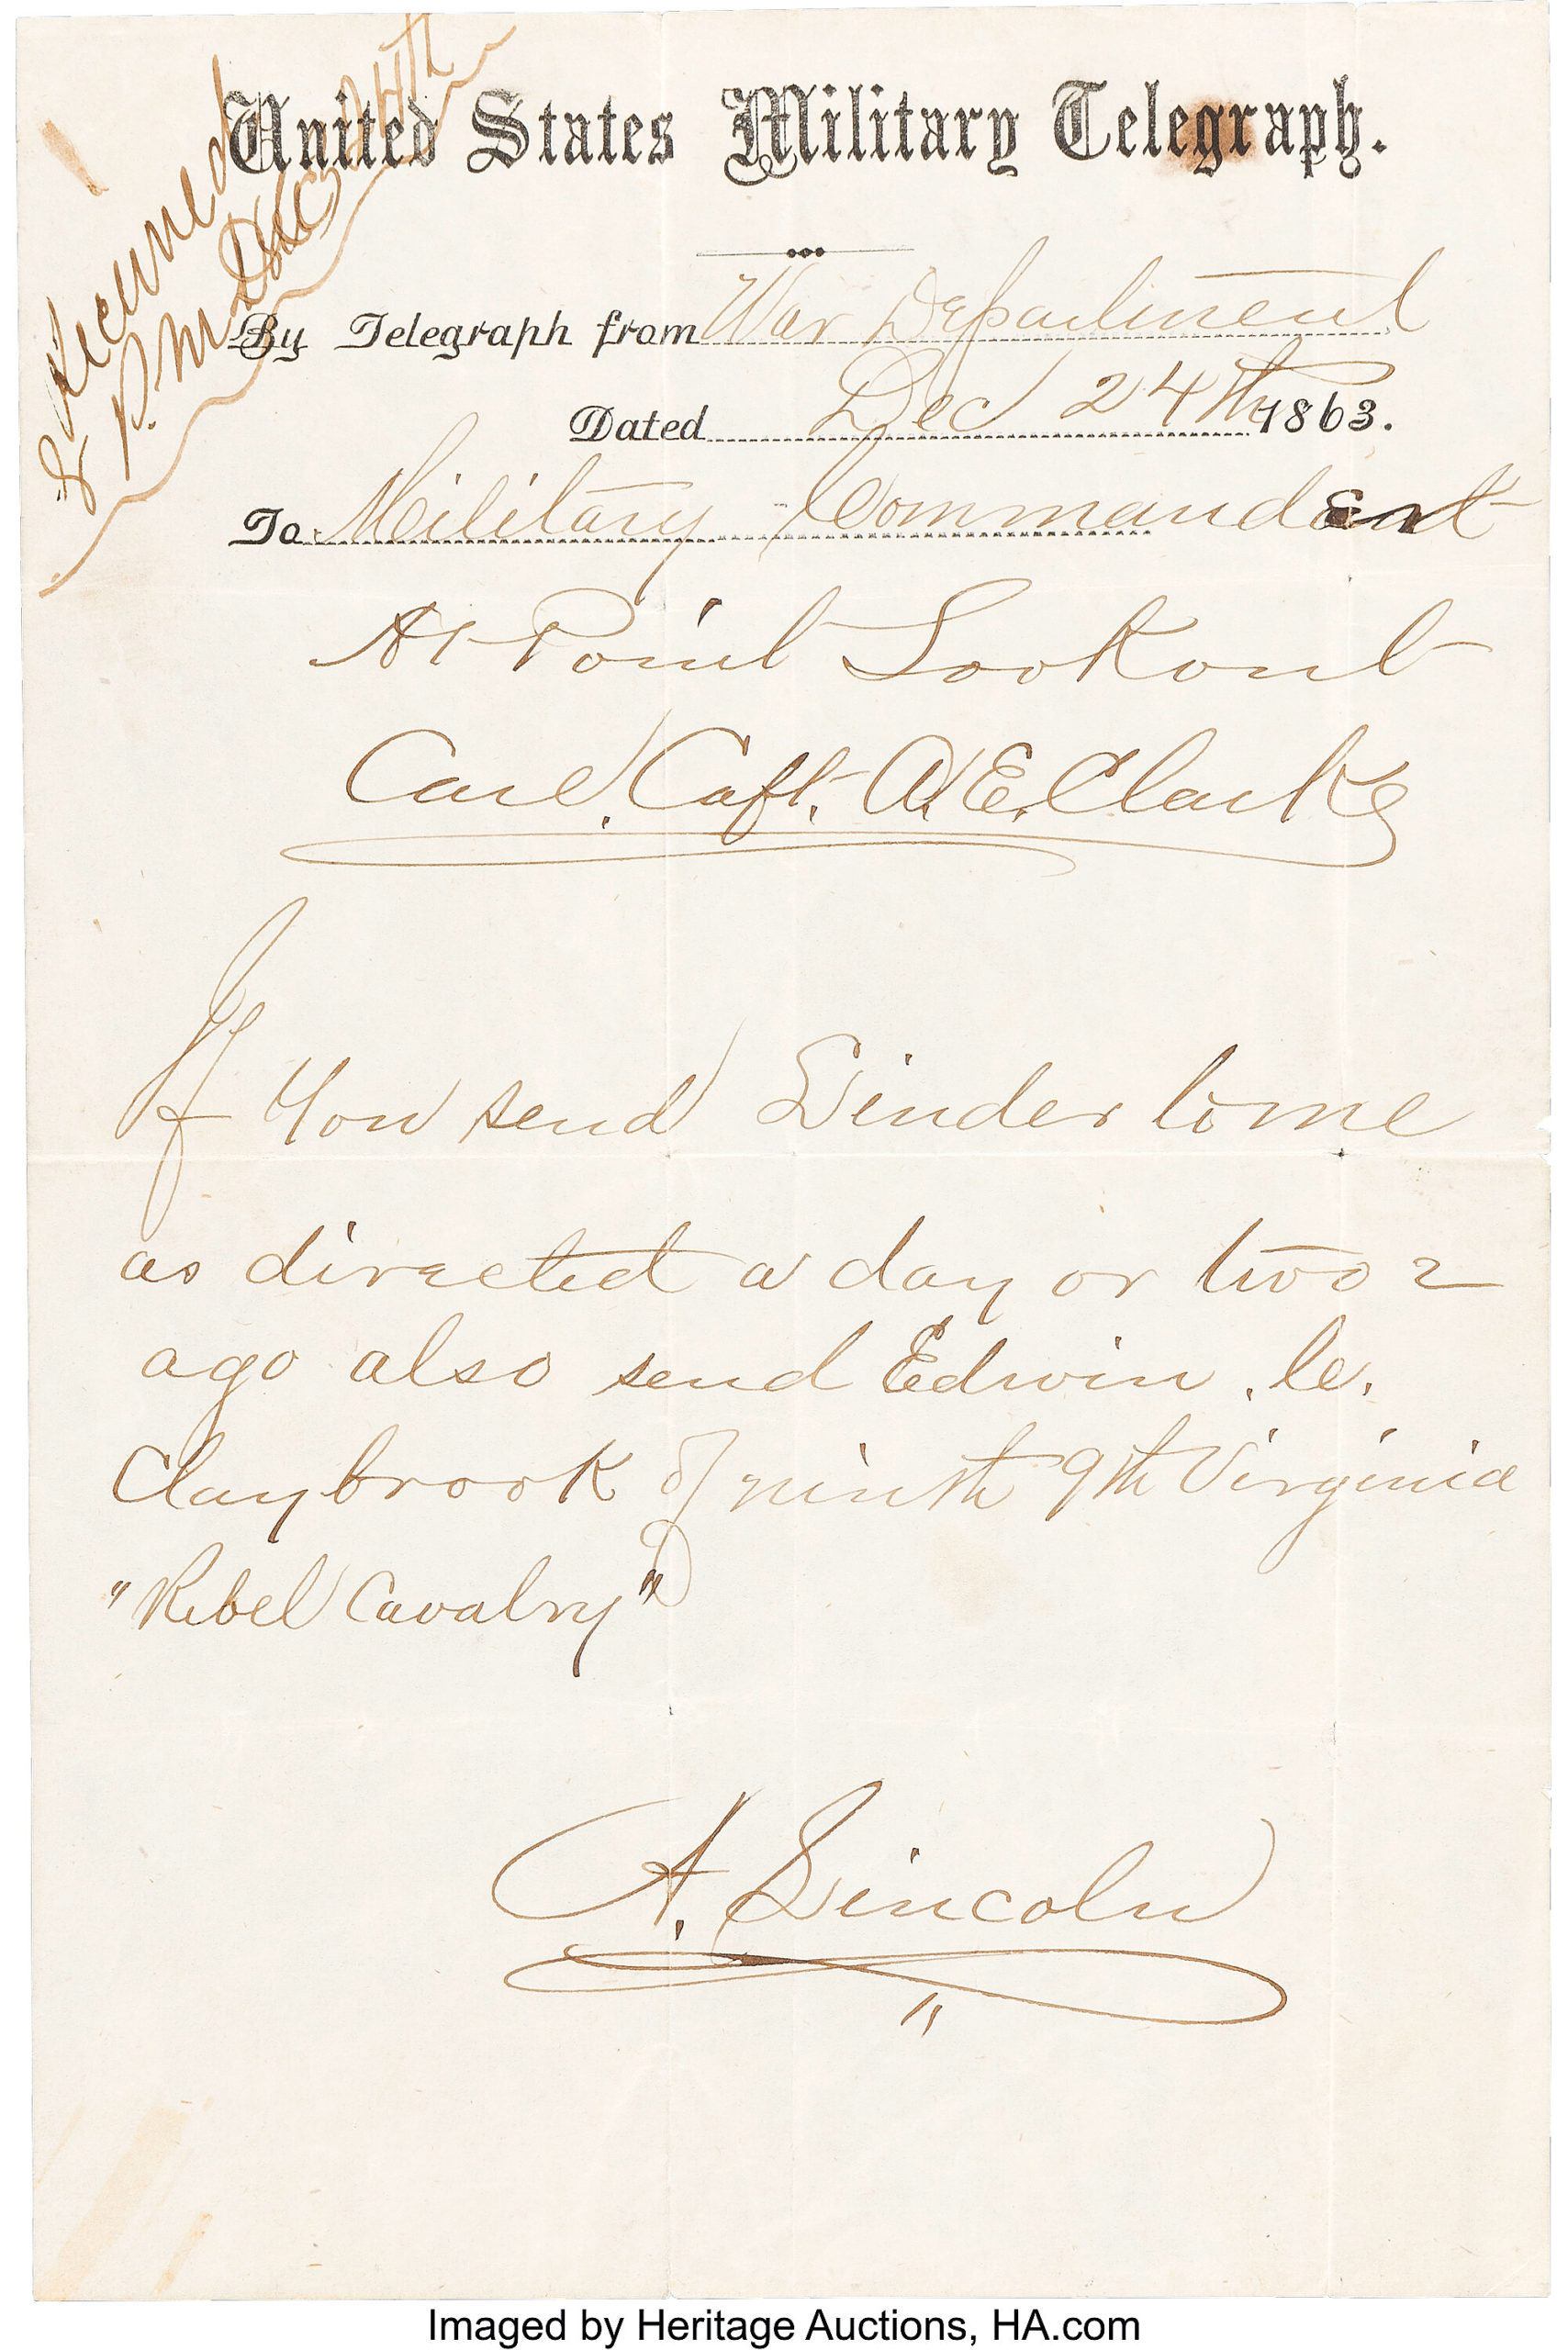 Received
8 P.M. Dec 24th
United States Military Telegraph.
By Telegraph from War Department
Dated Dec 24th 1863.
To Military Commandant
At Point Lookout
Care. Capt. A. E. Clarke
If You send Linder to me
as directed a day or two 2
ago also send Edwin. C.
Claybrook of ninth 9th Virginia
"Rebel Cavalry"
A. Lincoln
Imaged by Heritage Auctions, HA.com